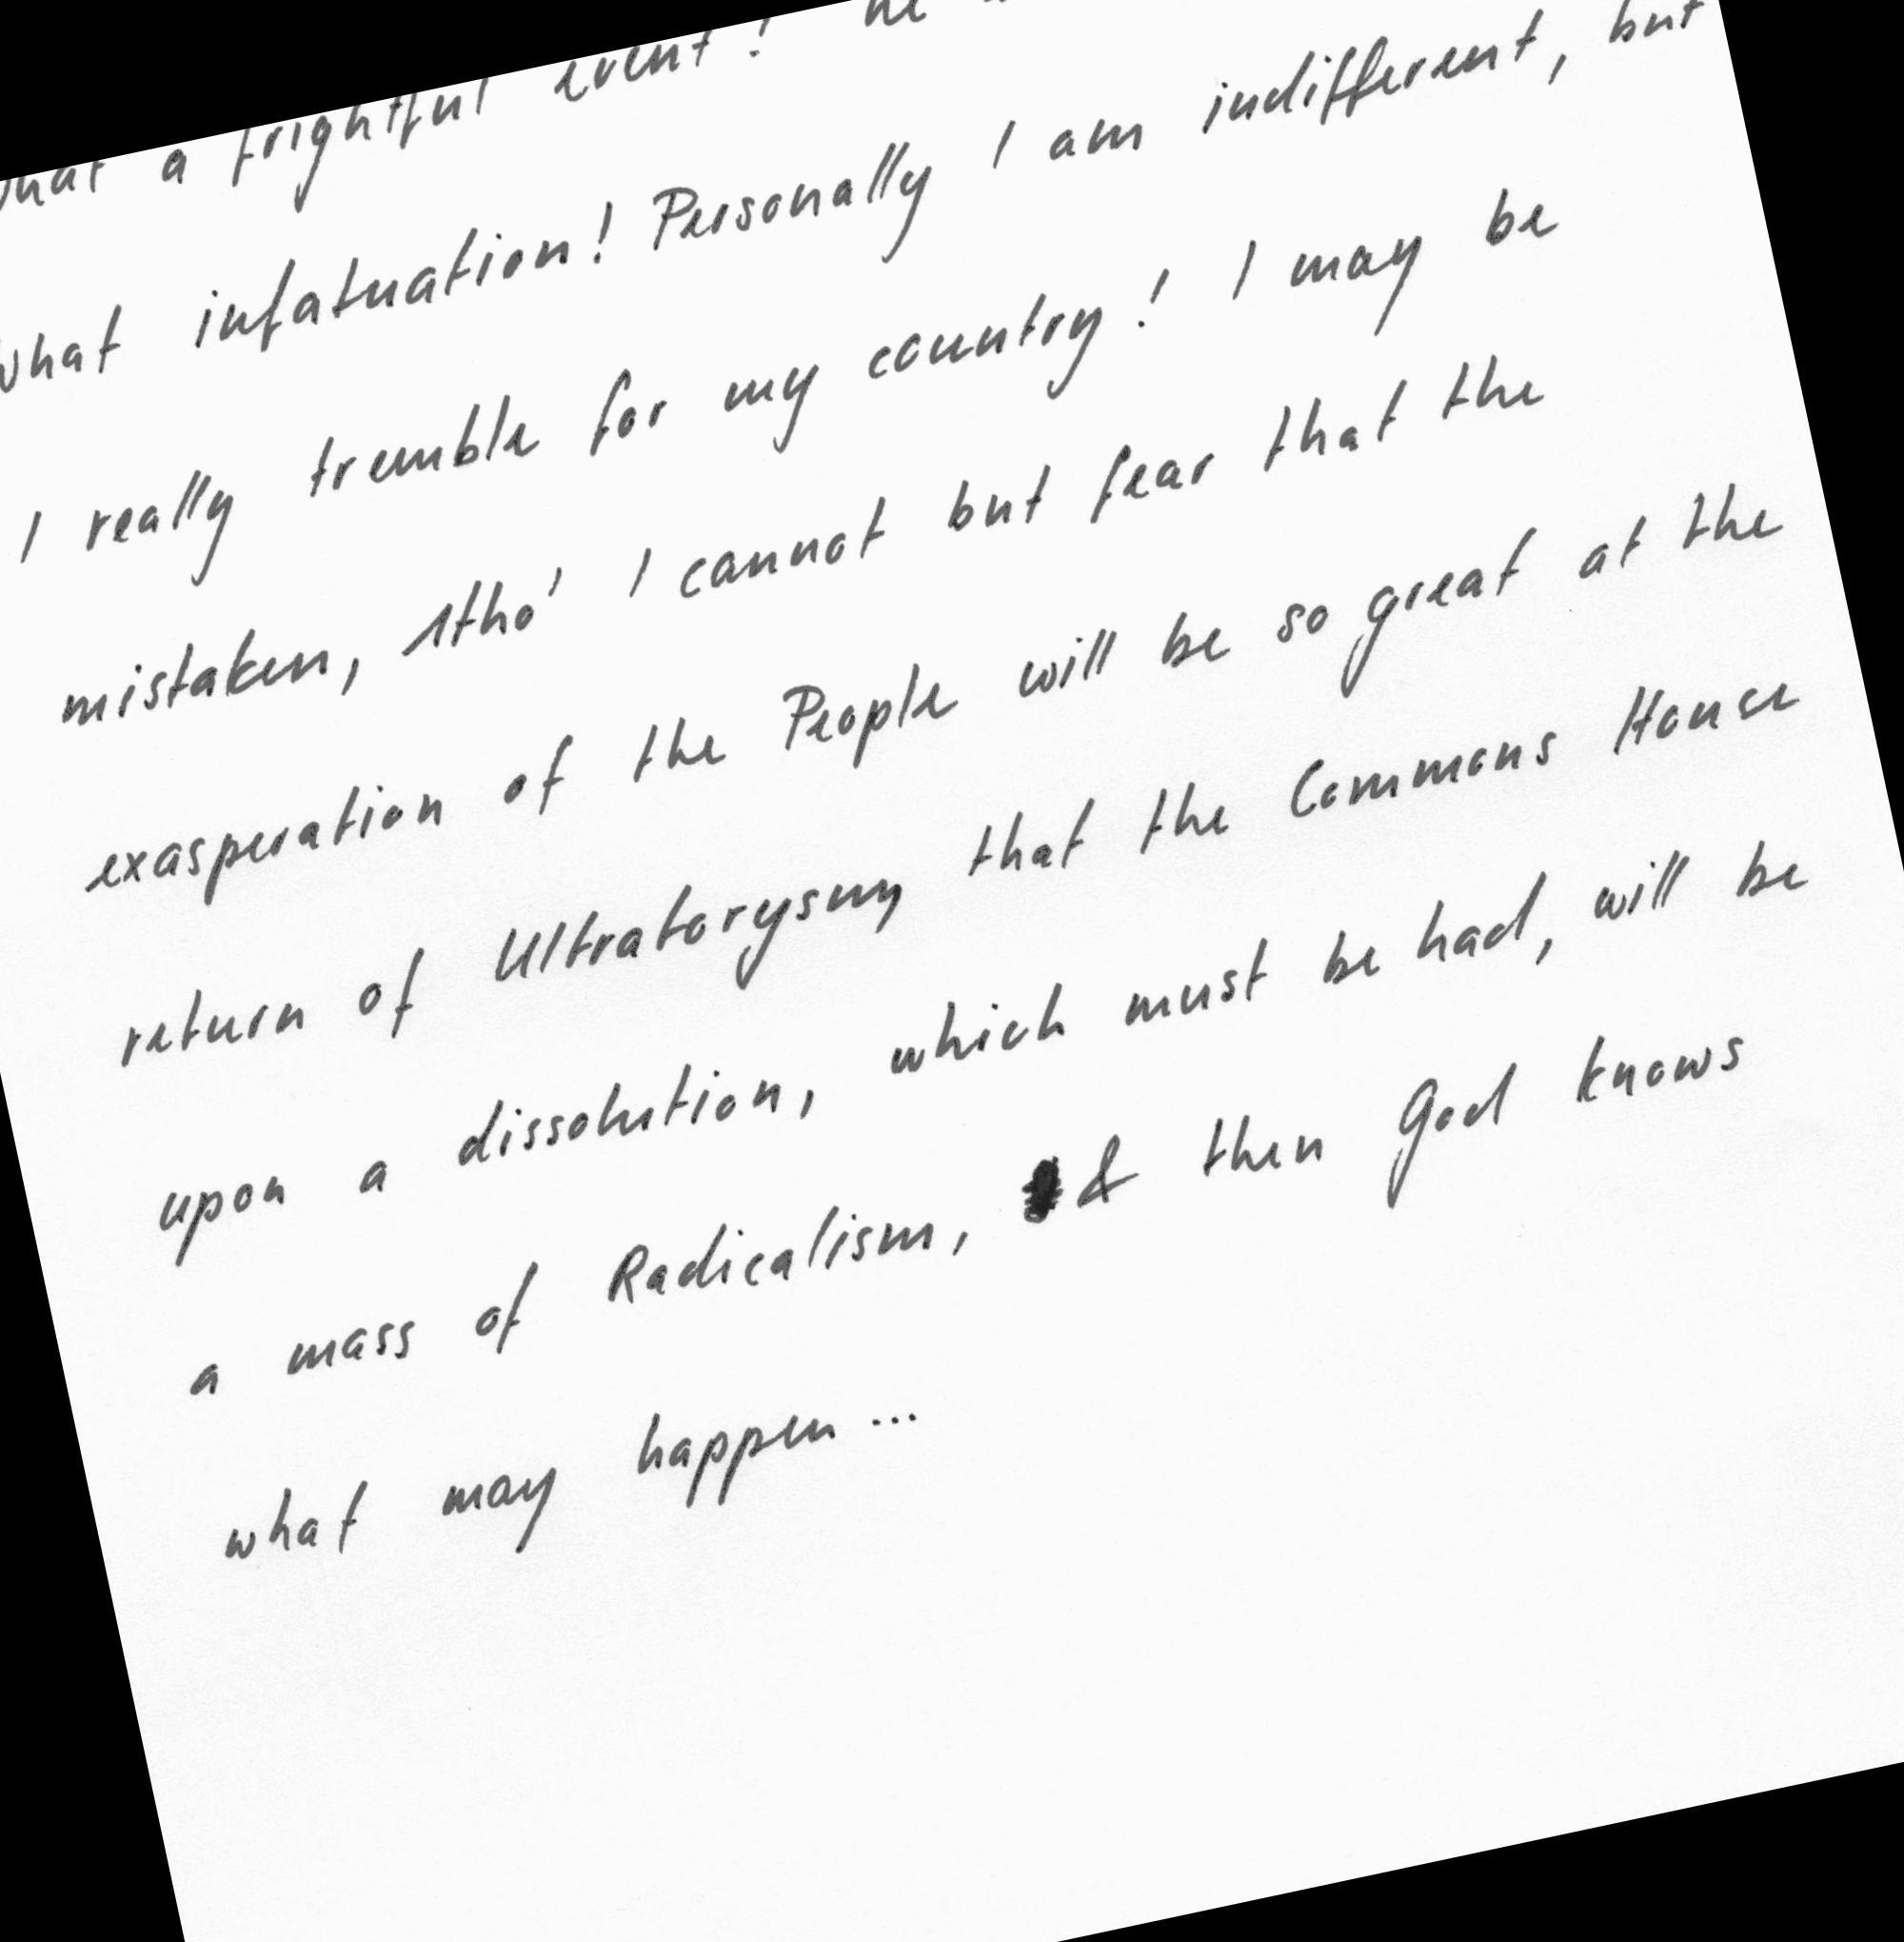 what a frightful event! he
what infatuation! Personally I am indifferent, but
I really tremble for my country! I may be
mistaken, Atho' I cannot but fear that the
exasperation of the People will be so great at the
return of Ultratorysm, that the Commons House
upon a dissolution, which must be had, will be
a mass of Radicalism, & then God knows
what may happen...